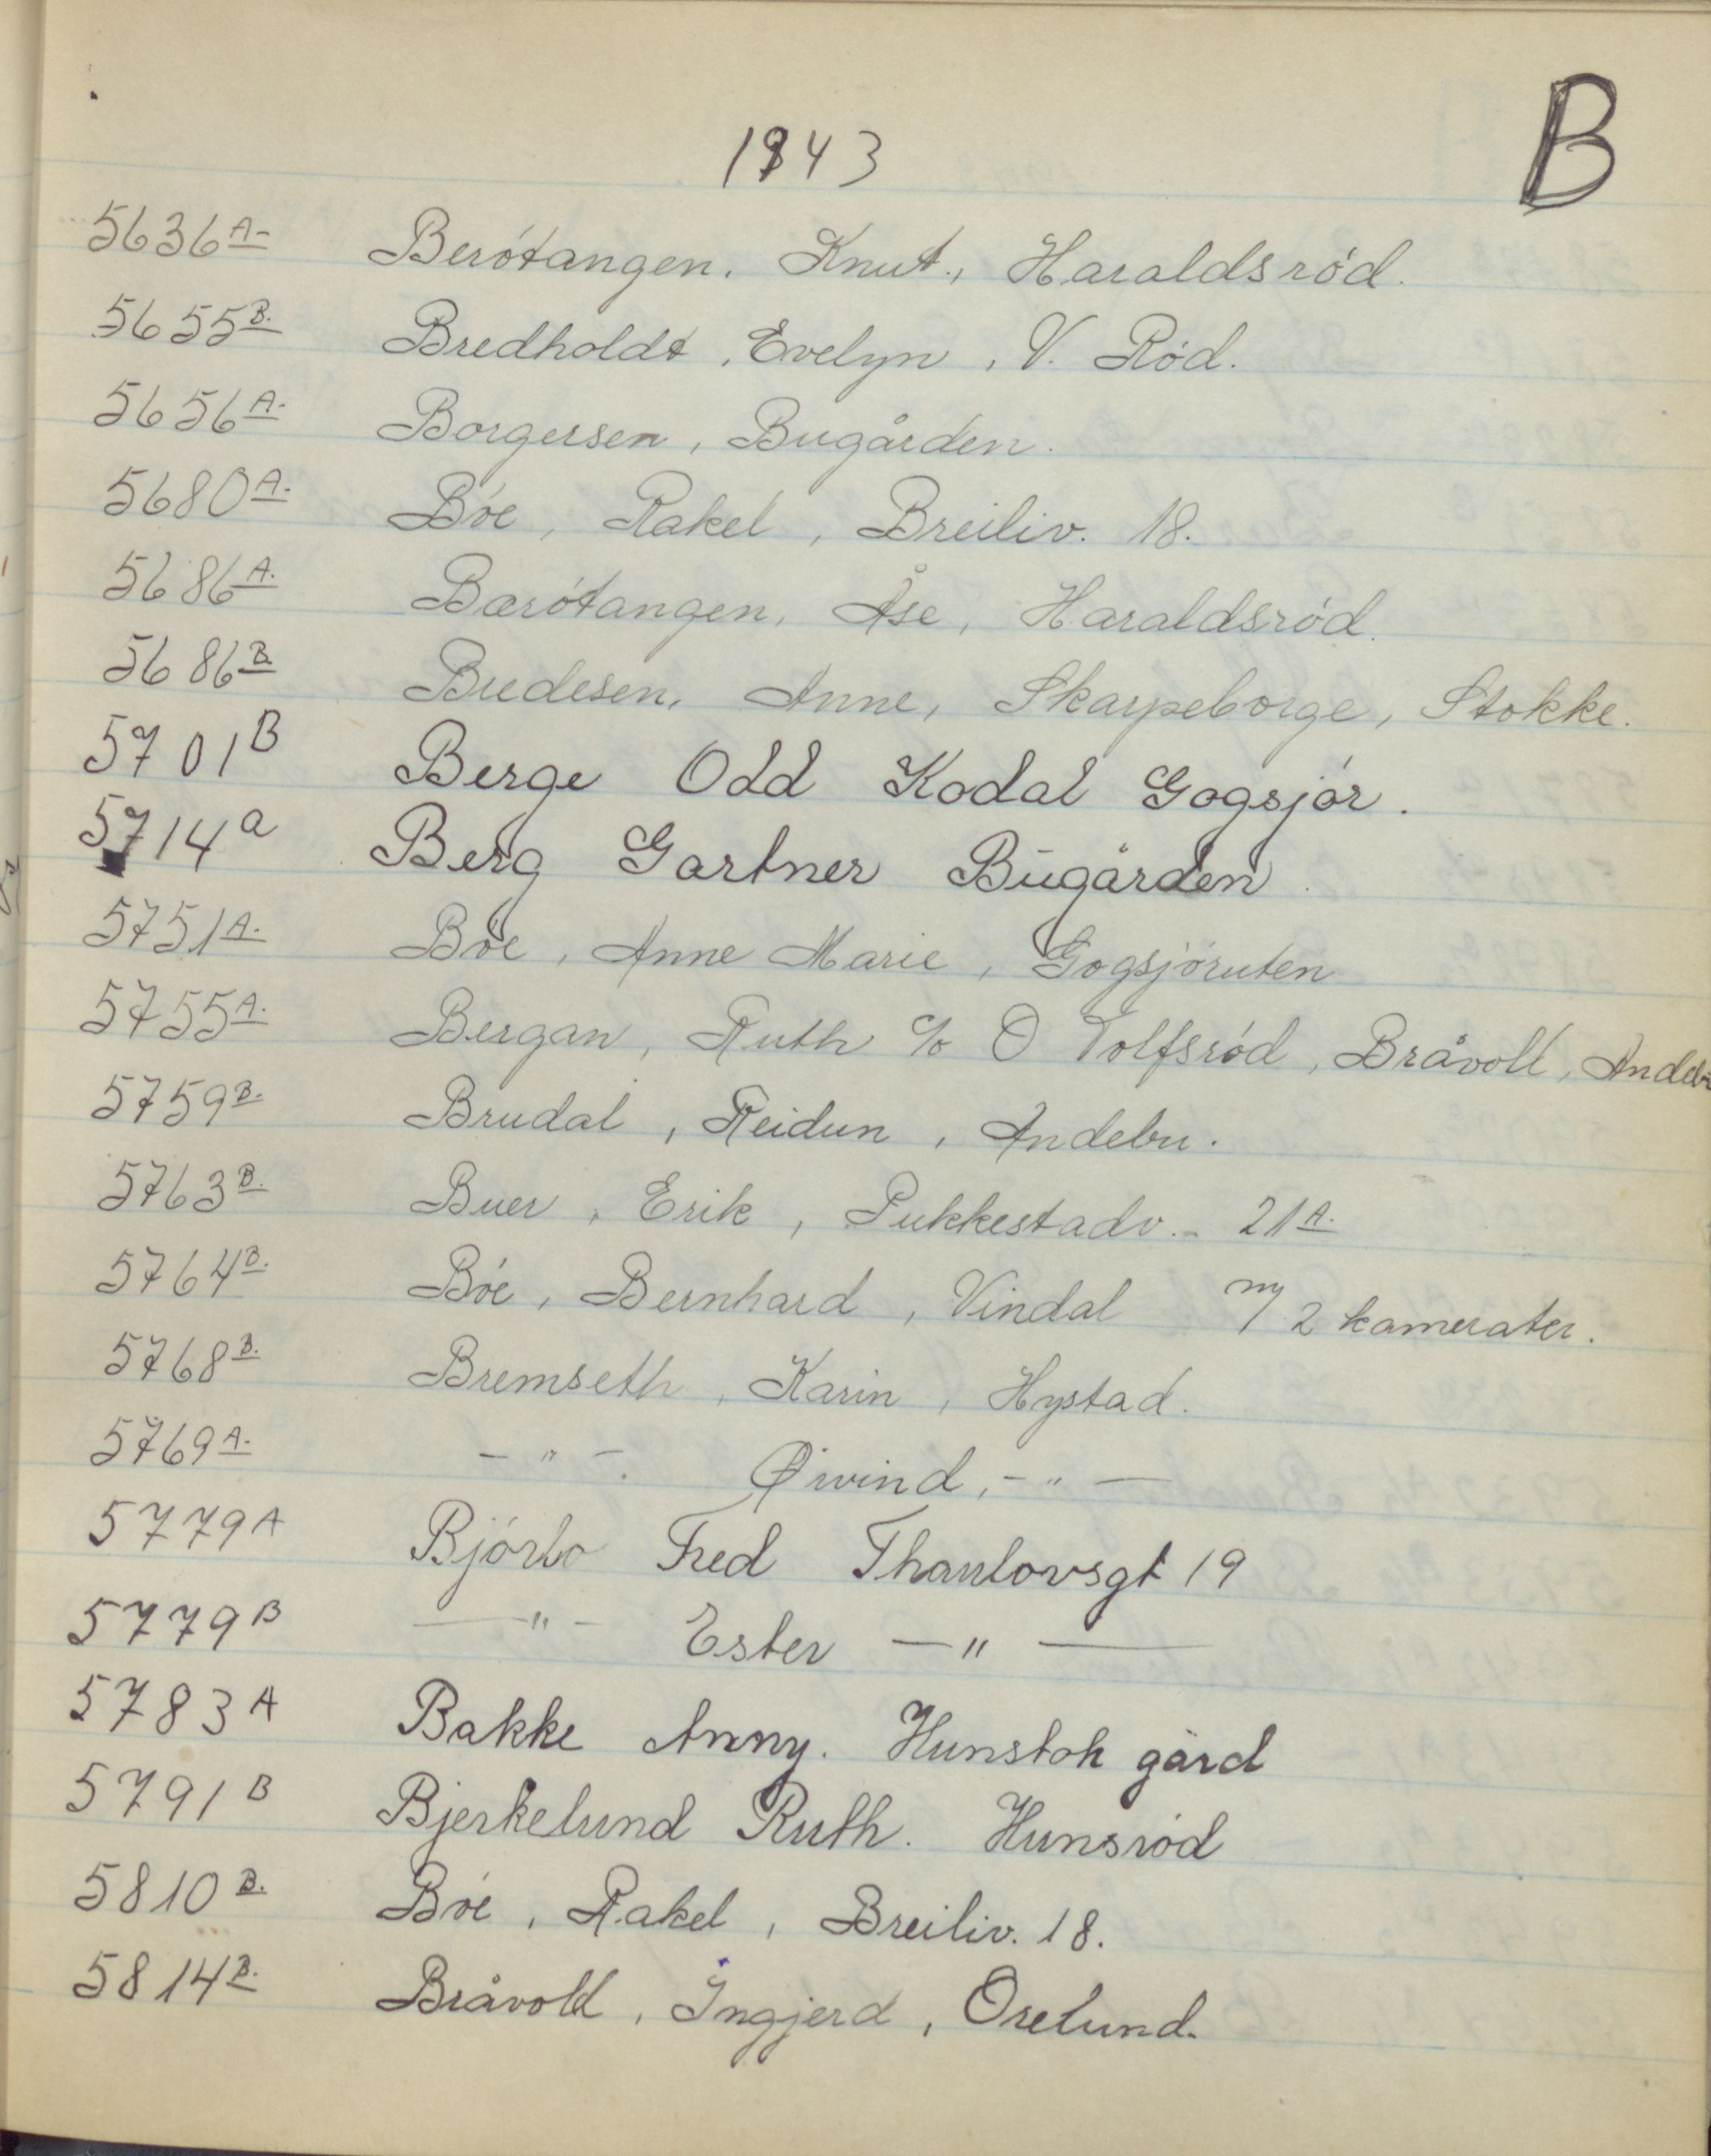 B
1943
5636 A- Berótangen, Knut., Haraldsród.
5655 B. Bredholdt, Evelyn, V. Ród.
5656 A. Borgersen, Bugården.
5680 A. Bóe, Rakel, Breiliv. 18.
5686 A. Barótangen, Åse, Haraldsród.
5686 B. Bredesen, Anne, Skarpeborge, Stokke.
5701 B Berge Odd Kodal Gogsjór.
5714 a Berg Gartner Bugården.
5751 A. Bóe, Anne Marie, Gogsjóruten
5755 A. Bergan, Ruth c/o O Tolfsród, Bråvoll, Andebu
5759 B. Brudal, Reidun, Andebu.
5763 B. Buer, Erik, Pukkestadv. - 21 A.
5764 B. Bóe, Bernhard, Vindal m/ 2 kamerater.
5768 B. Bremseth, Karin, Hystad.
5769 A. - " -. Øivind, - " -
5779 A Bjórbo Fred Thaulovsgt 19
5779 B - " - Ester - " -
5783 A Bakke Anny. Hunstok gård
5791 B Bjerkelund Ruth. Hunsród
5810 B. Bóe, Rakel, Breiliv. 18.
5814 B. Bråvold, Ingjerd, Orelund.